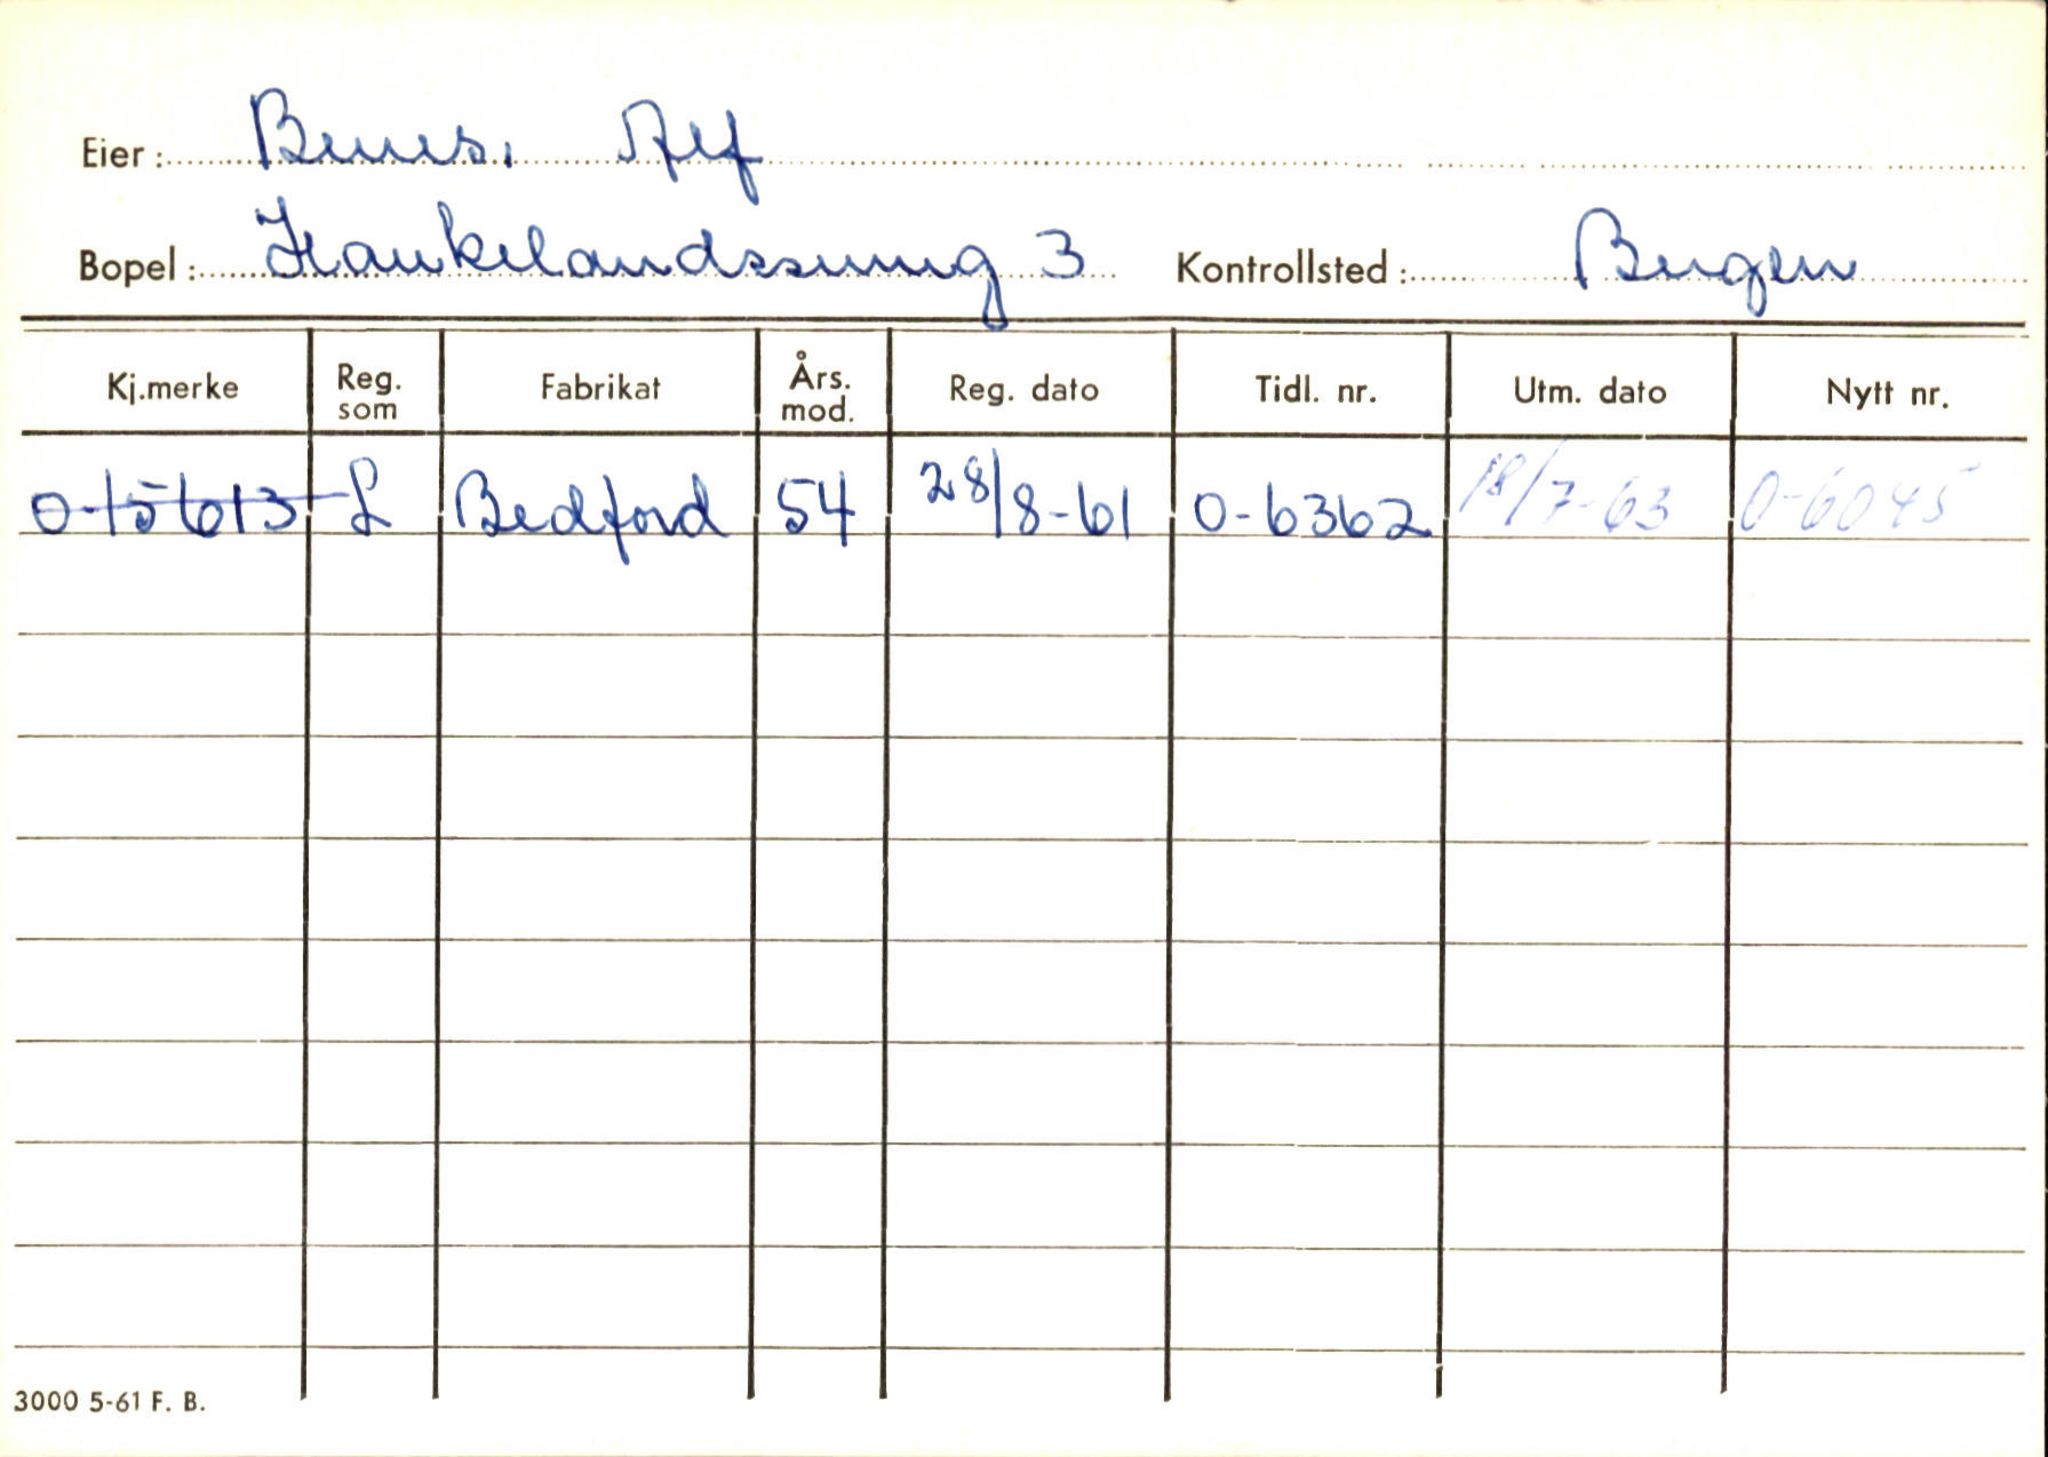 Eier : Alf
Bopel : 3 Kontrollsted : Bergen
Kj.merke Reg. som Fabrikat Års. mod. Reg. dato Tidl. nr. Utm. dato Nytt nr.
O-15613 L Bedford 54 28/8-61 O-6362 18/7-63 O-6045
3000 5-61 F. B.